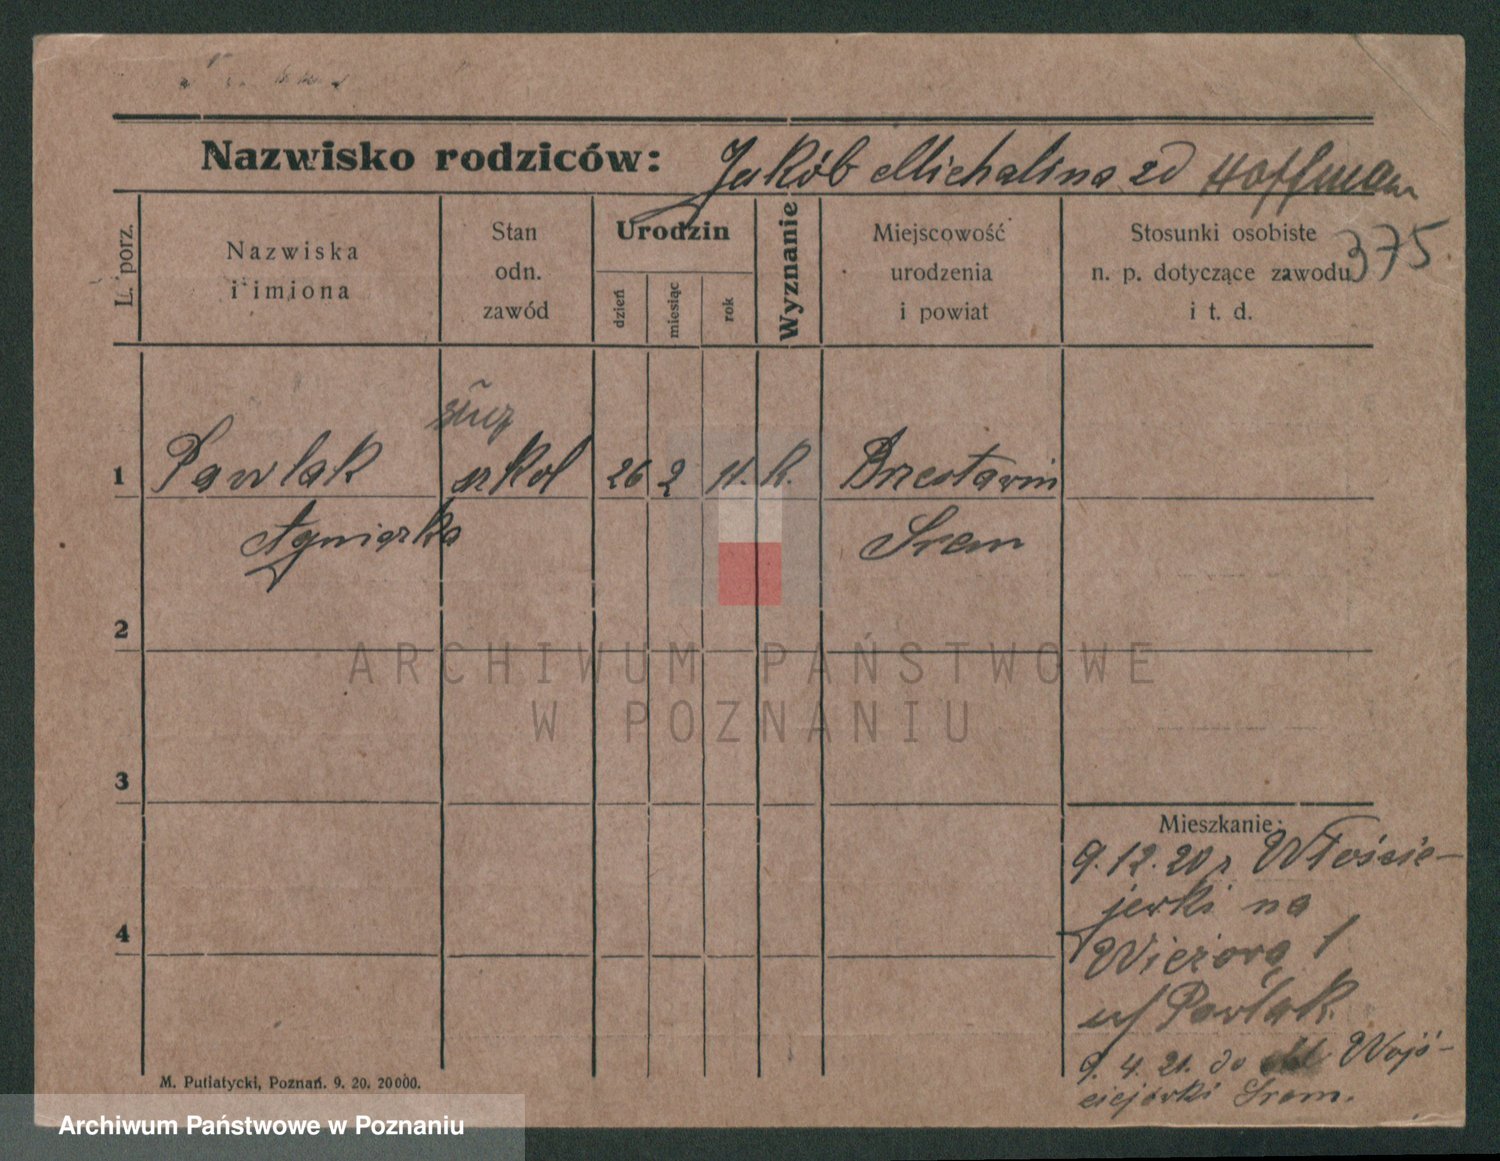 Nazwisko rodziców: Jakób Michalina zd Hoffmann
375
L. porz.
Nazwiska
i imiona
Stan
odn.
zawód
Urodzin
dzień
miesiąc
rok
Wyznanie
Miejscowość
urodzenia
i powiat
Stosunki osobiste
n. p. dotyczące zawodu
i t. d.
1 Pawlak szkol 26 2 11. k.
Agnieszka Srem
2
3
4
Mieszkanie:
9.12.20 r Włoście-
jewki na
Wieżową 1
u/ Pawlak
9. 4. 21. do Wojś-
ciejewki Srem.
M. Putiatycki, Poznań. 9. 20. 20000.
ARCHIWUM PAŃSTWOWE
W POZNANIU
Archiwum Państwowe w Poznaniu